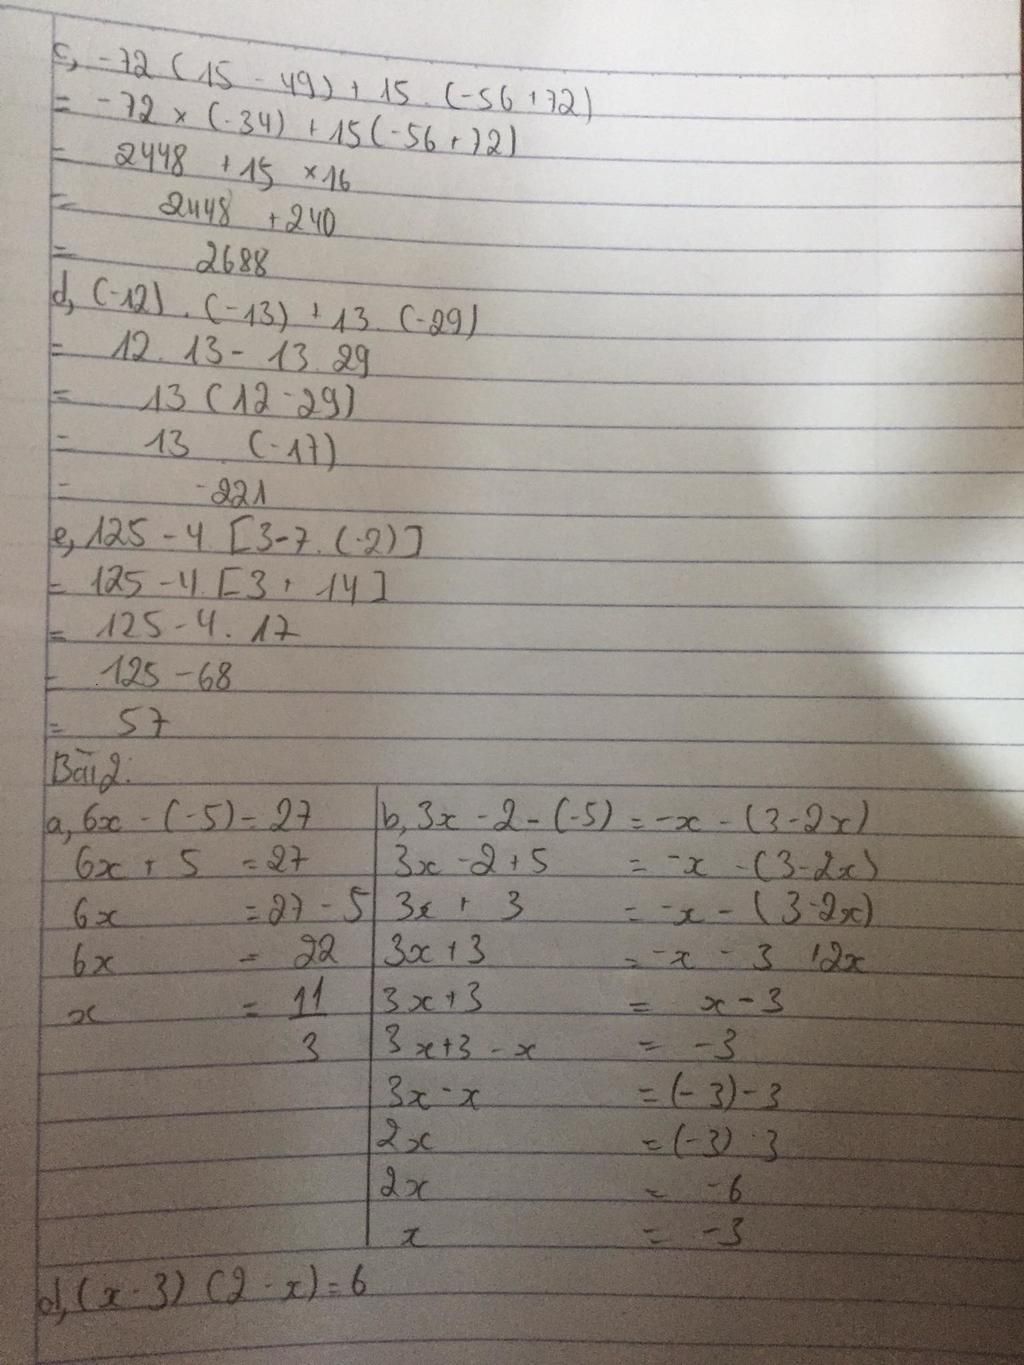 c, -72 (15 - 49) + 15 . (-56 + 72)
= -72 × (-34) + 15 (-56 + 72)
= 2448 + 15 × 16
= 2448 + 240
= 2688
d, (-12) . (-13) + 13 . (-29)
= 12 . 13 - 13 . 29
= 13 (12 - 29)
= 13 . (-17)
= -221
e, 125 - 4 . [3 - 7 . (-2)]
= 125 - 4 . [3 + 14]
= 125 - 4 . 17
= 125 - 68
= 57
Bài 2:
a, 6x - (-5) = 27
6x + 5 = 27
6x = 27 - 5
6x = 22
x = 11/3
b, 3x - 2 - (-5) = -x - (3 - 2x)
3x - 2 + 5 = -x - (3 - 2x)
3x + 3 = -x - (3 - 2x)
3x + 3 = -x - 3 + 2x
3x + 3 = x - 3
3x + 3 - x = -3
3x - x = (-3) - 3
2x = (-3) - 3
2x = -6
x = -3
d, (x - 3) (2 - x) = 6